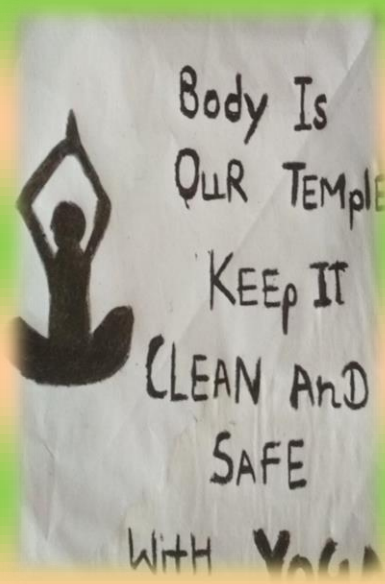 Body Is
OUR TEMplE
KEEp IT
CLEAN AnD
SAFE
WitH YOGA